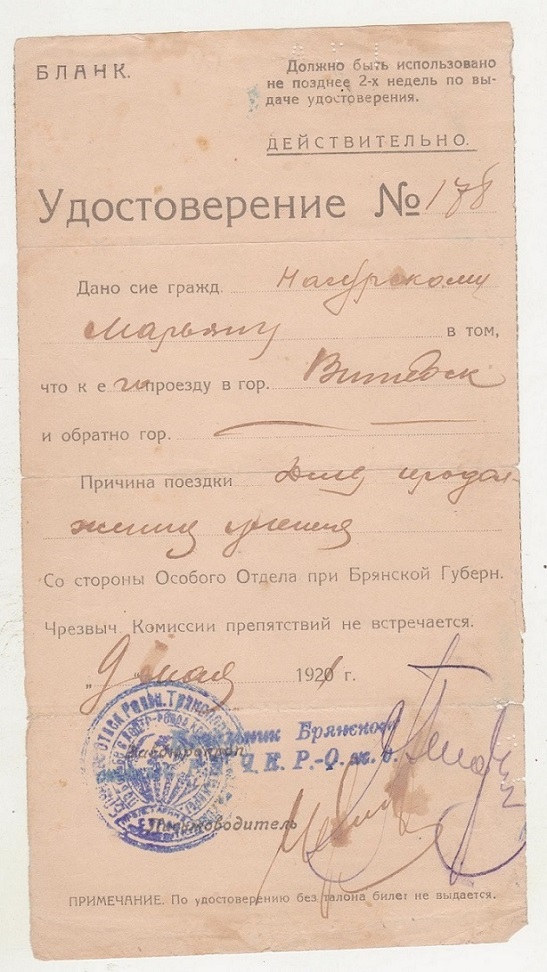 БЛАНК.
Должно быть использовано
не позднее 2-х недель по вы-
даче удостоверения.
ДЕЙСТВИТЕЛЬНО.
Удостоверение № 178
Дано сие гражд. Нагурскому
Марьяну в том,
что к е го проезду в гор. Витебск
и обратно гор.
Причина поездки Для продол-
жения учения
Со стороны Особого Отдела при Брянской Губерн.
Чрезвыч. Комиссии препятствий не встречается.
„9" мая 1921 г.
Брянского
Ч. К.
Делопроизводитель
ПРИМЕЧАНИЕ. По удостоверению без талона билет не выдается.